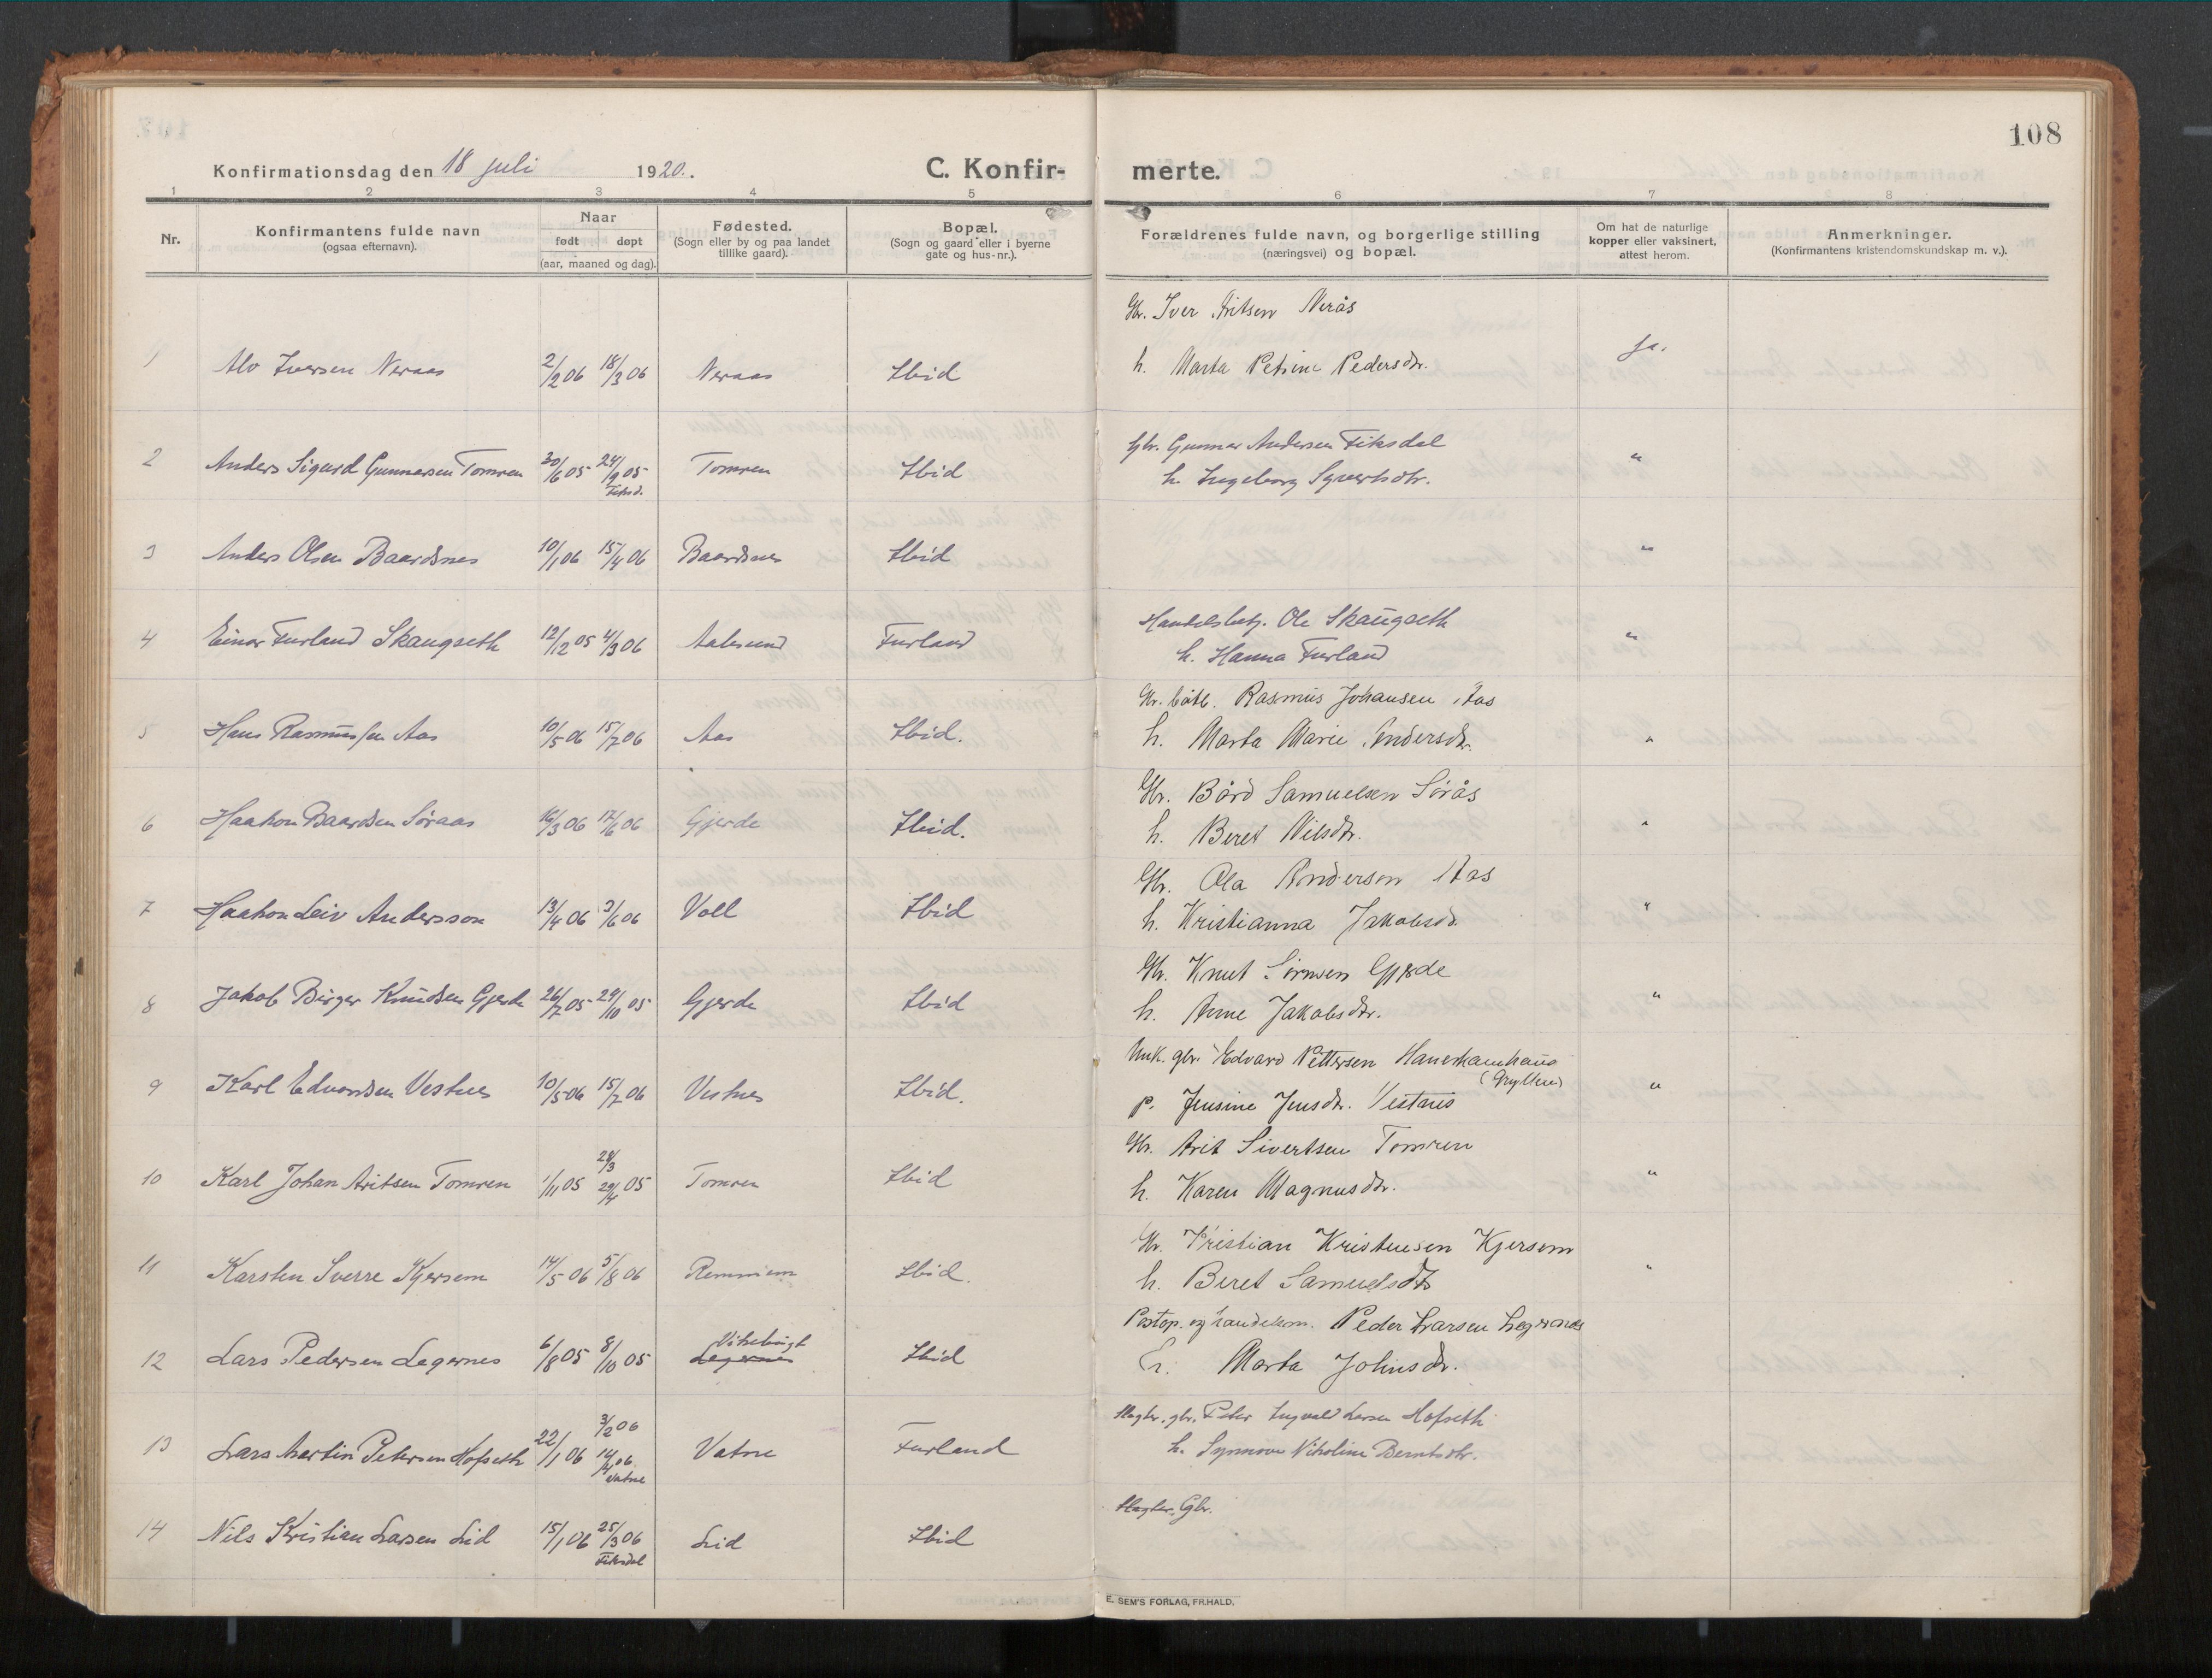 108
Konfirmationsdag den 18 juli 1920.
C. Konfir-merte.
1 2 3 4 5 6 7 8
Nr.
Konfirmantens fulde navn
(ogsaa efternavn).
Naar
født døpt
(aar, maaned og dag).
Fødested.
(Sogn eller by og paa landet
tillike gaard).
Bopæl.
(Sogn og gaard eller i byerne
gate og hus-nr.).
Forældrenes fulde navn, og borgerlige stilling
(næringsvei) og bopæl.
Om hat de naturlige
kopper eller vaksinert,
attest herom.
Anmerkninger.
(Konfirmantens kristendomskundskap m. v.).
Gbr. Iver Aritsen Nerås
1 Alv Iversen Neraas 2/2 06 18/3 06 Neraas Ibid h. Marta Petrine Pedersdtr. Ja.
Gbr. Gunnar Andersen Fiksdal
2 Anders Sigurd Gunnarsen Tomren 30/6 05 24/9 05 Tomren Ibid h. Ingeborg Syvertsdtr. "
Fiksd.
3 Anders Olsen Baardsnes 10/1 06 15/4 06 Baardsnes Ibid "
Handelsbetj. Ole Skaugseth
4 Einar Furland Skaugseth 12/12 05 4/3 06 Aalesund Furland h. Hanna Furland "
Gbr. båtb. Rasmus Johansen Aas
5 Hans Rasmussen Aas 10/5 06 15/7 06 Aas Ibid. h. Marta Marie Andersdtr. "
Gbr. Bård Samuelsen Sørås
6 Haakon Baardsen Søraas 16/3 06 17/6 06 Gjerde Ibid. h. Beret Nilsdtr. "
Gbr. Ola Anderson Aas
7 Haakon Leiv Andersson 13/4 06 3/6 06 Voll Ibid h. Kristianna Jakobsd. "
Gbr. Knut Sørnsen Gjerde
8 Jakob Birger Knudsen Gjerde 26/7 05 29/10 05 Gjerde Ibid h. Anne Jakobsdtr. "
Unk. gbr. Edvard Pettersen Hanekamhaug
(Gryllen)
9 Karl Edvardsen Vestnes 10/5 06 15/7 06 Vestnes Ibid. p. Jensine Jensdtr. Vestnes "
Gbr. Arit Sivertsen Tomren
28/3
10 Karl Johan Aritsen Tomren 1/11 05 29/4 05 Tomren Ibid h. Karen Magnusdtr. "
Gbr. Kristian Kristensen Kjersem
11 Karsten Sverre Kjersem 14/5 06 5/8 06 Remmem Ibid. h. Beret Samuelsdtr "
Postop. og handelsm. Peder Larsen Legernes
Vikebugt
12 Lars Pedersen Legernes 6/8 05 8/10 05 Legernes Ibid h. Marta Johnsdtr.
Slagter, gbr. Peter Ingvald Larsen Hofseth
3/2 06
13 Lars Martin Petersen Hofseth 22/1 06 14/4 06. Vatne Furland h. Synnøve Nikoline Berntsdtr.
Vatne
Slagter, Gbr.
14 Nils Kristian Larsen Lid 15/1 06 25/3 06 Lid Ibid
Fiksdal
E. SEM'S FORLAG, FR.HALD.